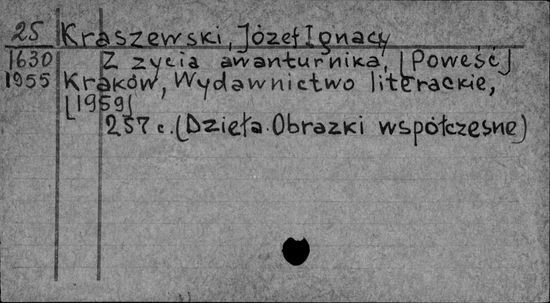 25 Kraszewski, Józef Ignacy
1630 Z życia awanturnika, [Poweść]
1955 Kraków, Wydawnictwo literackie,
[1959]
257 c. (Dzieła. Obrazki współczesne)